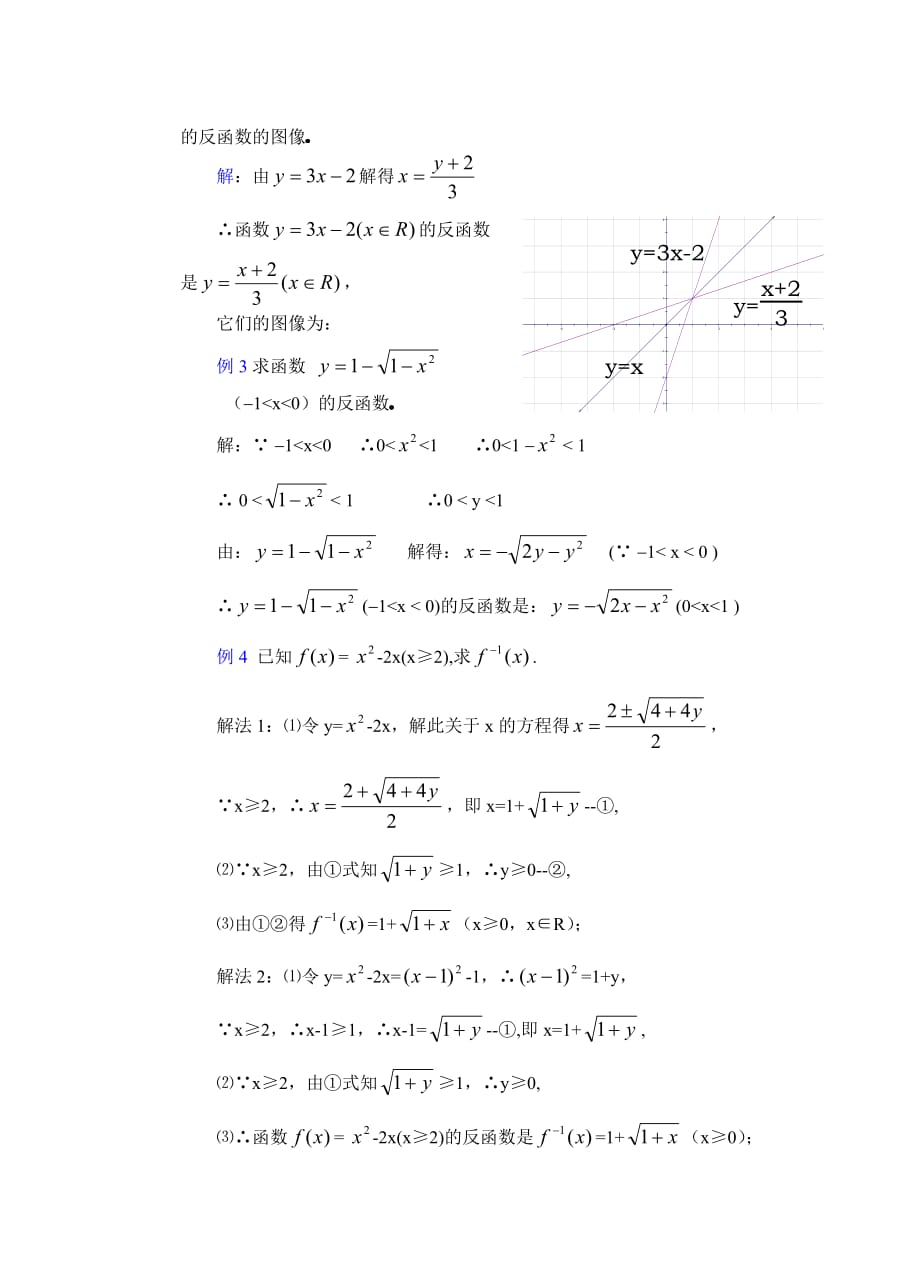 的反函数的图像.
解：由 y = 3x − 2 解得 x = (y + 2)/3
∴函数 y = 3x − 2(x ∈ R) 的反函数
是 y = (x + 2)/3 (x ∈ R)，
它们的图像为：
y=3x-2
y=(x+2)/3
y=x
例 3 求函数 y = 1 − √(1 − x²)
（–1<x<0）的反函数.
解：∵ –1<x<0 ∴0< x² <1 ∴0<1 – x² < 1
∴ 0 < √(1 − x²) < 1 ∴0 < y <1
由： y = 1 − √(1 − x²) 解得： x = −√(2y − y²) (∵ –1< x < 0 )
∴ y = 1 − √(1 − x²) (–1<x < 0)的反函数是： y = −√(2x − x²) (0<x<1 )
例 4 已知 f(x) = x² -2x(x≥2),求 f⁻¹(x) .
解法 1：⑴令 y= x² -2x，解此关于 x 的方程得 x = (2 ± √(4 + 4y))/2 ，
∵x≥2，∴ x = (2 + √(4 + 4y))/2 ，即 x=1+ √(1 + y) --①,
⑵∵x≥2，由①式知 √(1 + y) ≥1，∴y≥0--②,
⑶由①②得 f⁻¹(x) =1+ √(1 + x)（x≥0，x∈R）；
解法 2：⑴令 y= x² -2x= (x − 1)² -1，∴ (x − 1)² =1+y，
∵x≥2，∴x-1≥1，∴x-1= √(1 + y) --①,即 x=1+ √(1 + y) ,
⑵∵x≥2，由①式知 √(1 + y) ≥1，∴y≥0,
⑶∴函数 f(x) = x² -2x(x≥2)的反函数是 f⁻¹(x) =1+ √(1 + x)（x≥0）；